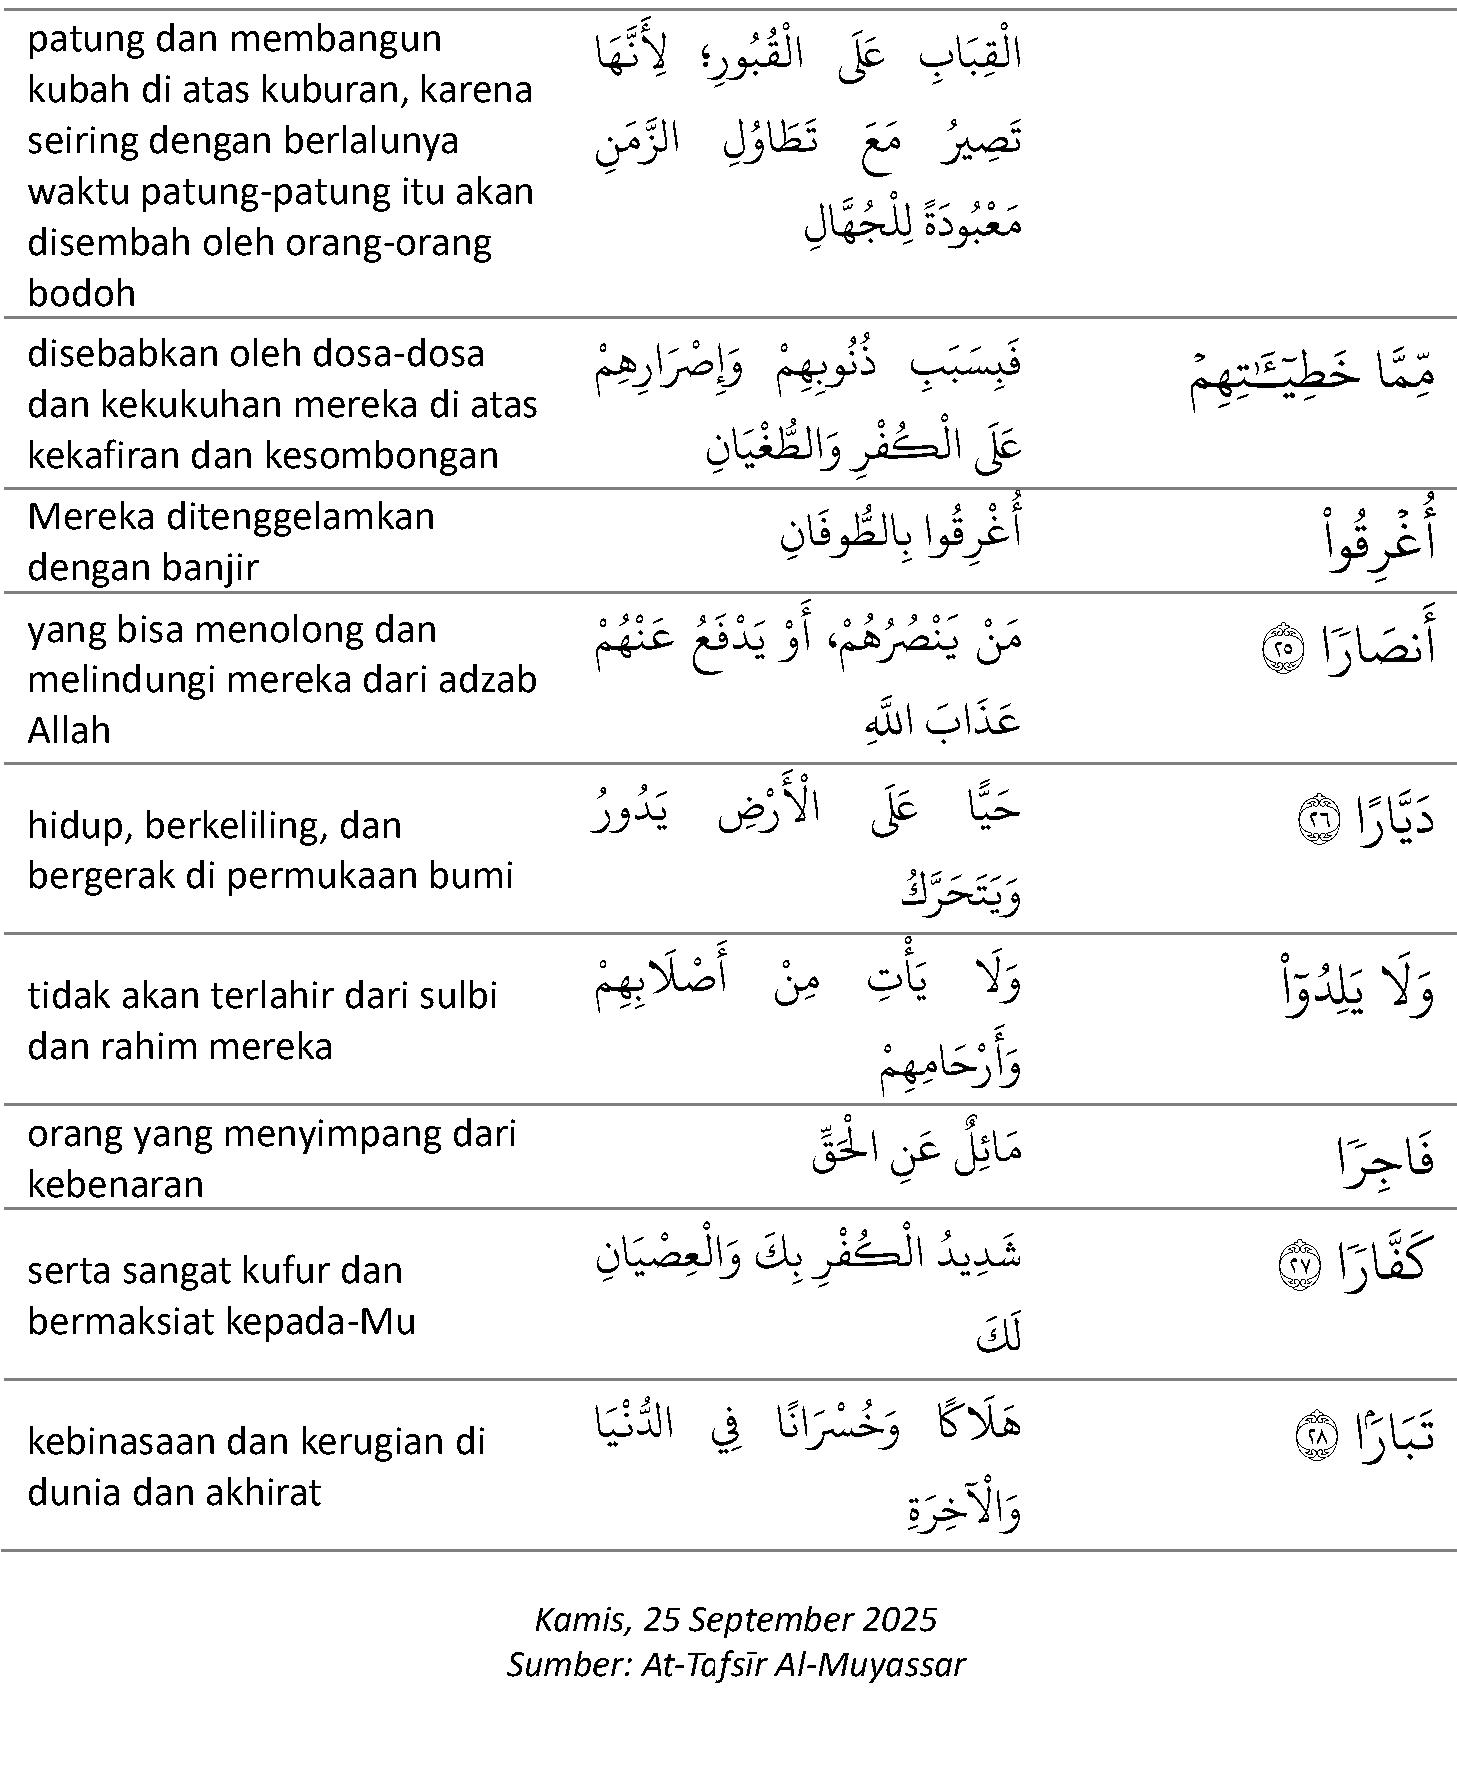 patung dan membangun
kubah di atas kuburan, karena
seiring dengan berlalunya
waktu patung-patung itu akan
disembah oleh orang-orang
bodoh
الْقِبَابِ عَلَى الْقُبُورِ؛ لِأَنَّهَا
تَصِيرُ مَعَ تَطَاوُلِ الزَّمَنِ
مَعْبُودَةً لِلْجُهَّالِ
disebabkan oleh dosa-dosa
dan kekukuhan mereka di atas
kekafiran dan kesombongan
فَبِسَبَبِ ذُنُوبِهِمْ وَإِصْرَارِهِمْ
عَلَى الْكُفْرِ وَالطُّغْيَانِ
مِّمَّا خَطِيٓـَٰٔتِهِمۡ
Mereka ditenggelamkan
dengan banjir
أُغْرِقُوا بِالطُّوفَانِ
أُغۡرِقُواْ
yang bisa menolong dan
melindungi mereka dari adzab
Allah
مَنْ يَنْصُرُهُمْ، أَوْ يَدْفَعُ عَنْهُمْ
عَذَابَ اللَّهِ
أَنصَارٗا ٢٥
hidup, berkeliling, dan
bergerak di permukaan bumi
حَيًّا عَلَى الْأَرْضِ يَدُورُ
وَيَتَحَرَّكُ
دَيَّارًا ٢٦
tidak akan terlahir dari sulbi
dan rahim mereka
وَلَا يَأْتِ مِنْ أَصْلَابِهِمْ
وَأَرْحَامِهِمْ
وَلَا يَلِدُوٓاْ
orang yang menyimpang dari
kebenaran
مَائِلٌ عَنِ الْحَقِّ
فَاجِرٗا
serta sangat kufur dan
bermaksiat kepada-Mu
شَدِيدُ الْكُفْرِ بِكَ وَالْعِصْيَانِ
لَكَ
كَفَّارٗا ٢٧
kebinasaan dan kerugian di
dunia dan akhirat
هَلَاكًا وَخُسْرَانًا فِي الدُّنْيَا
وَالْآخِرَةِ
تَبَارَۢا ٢٨
Kamis, 25 September 2025
Sumber: At-Tafsīr Al-Muyassar